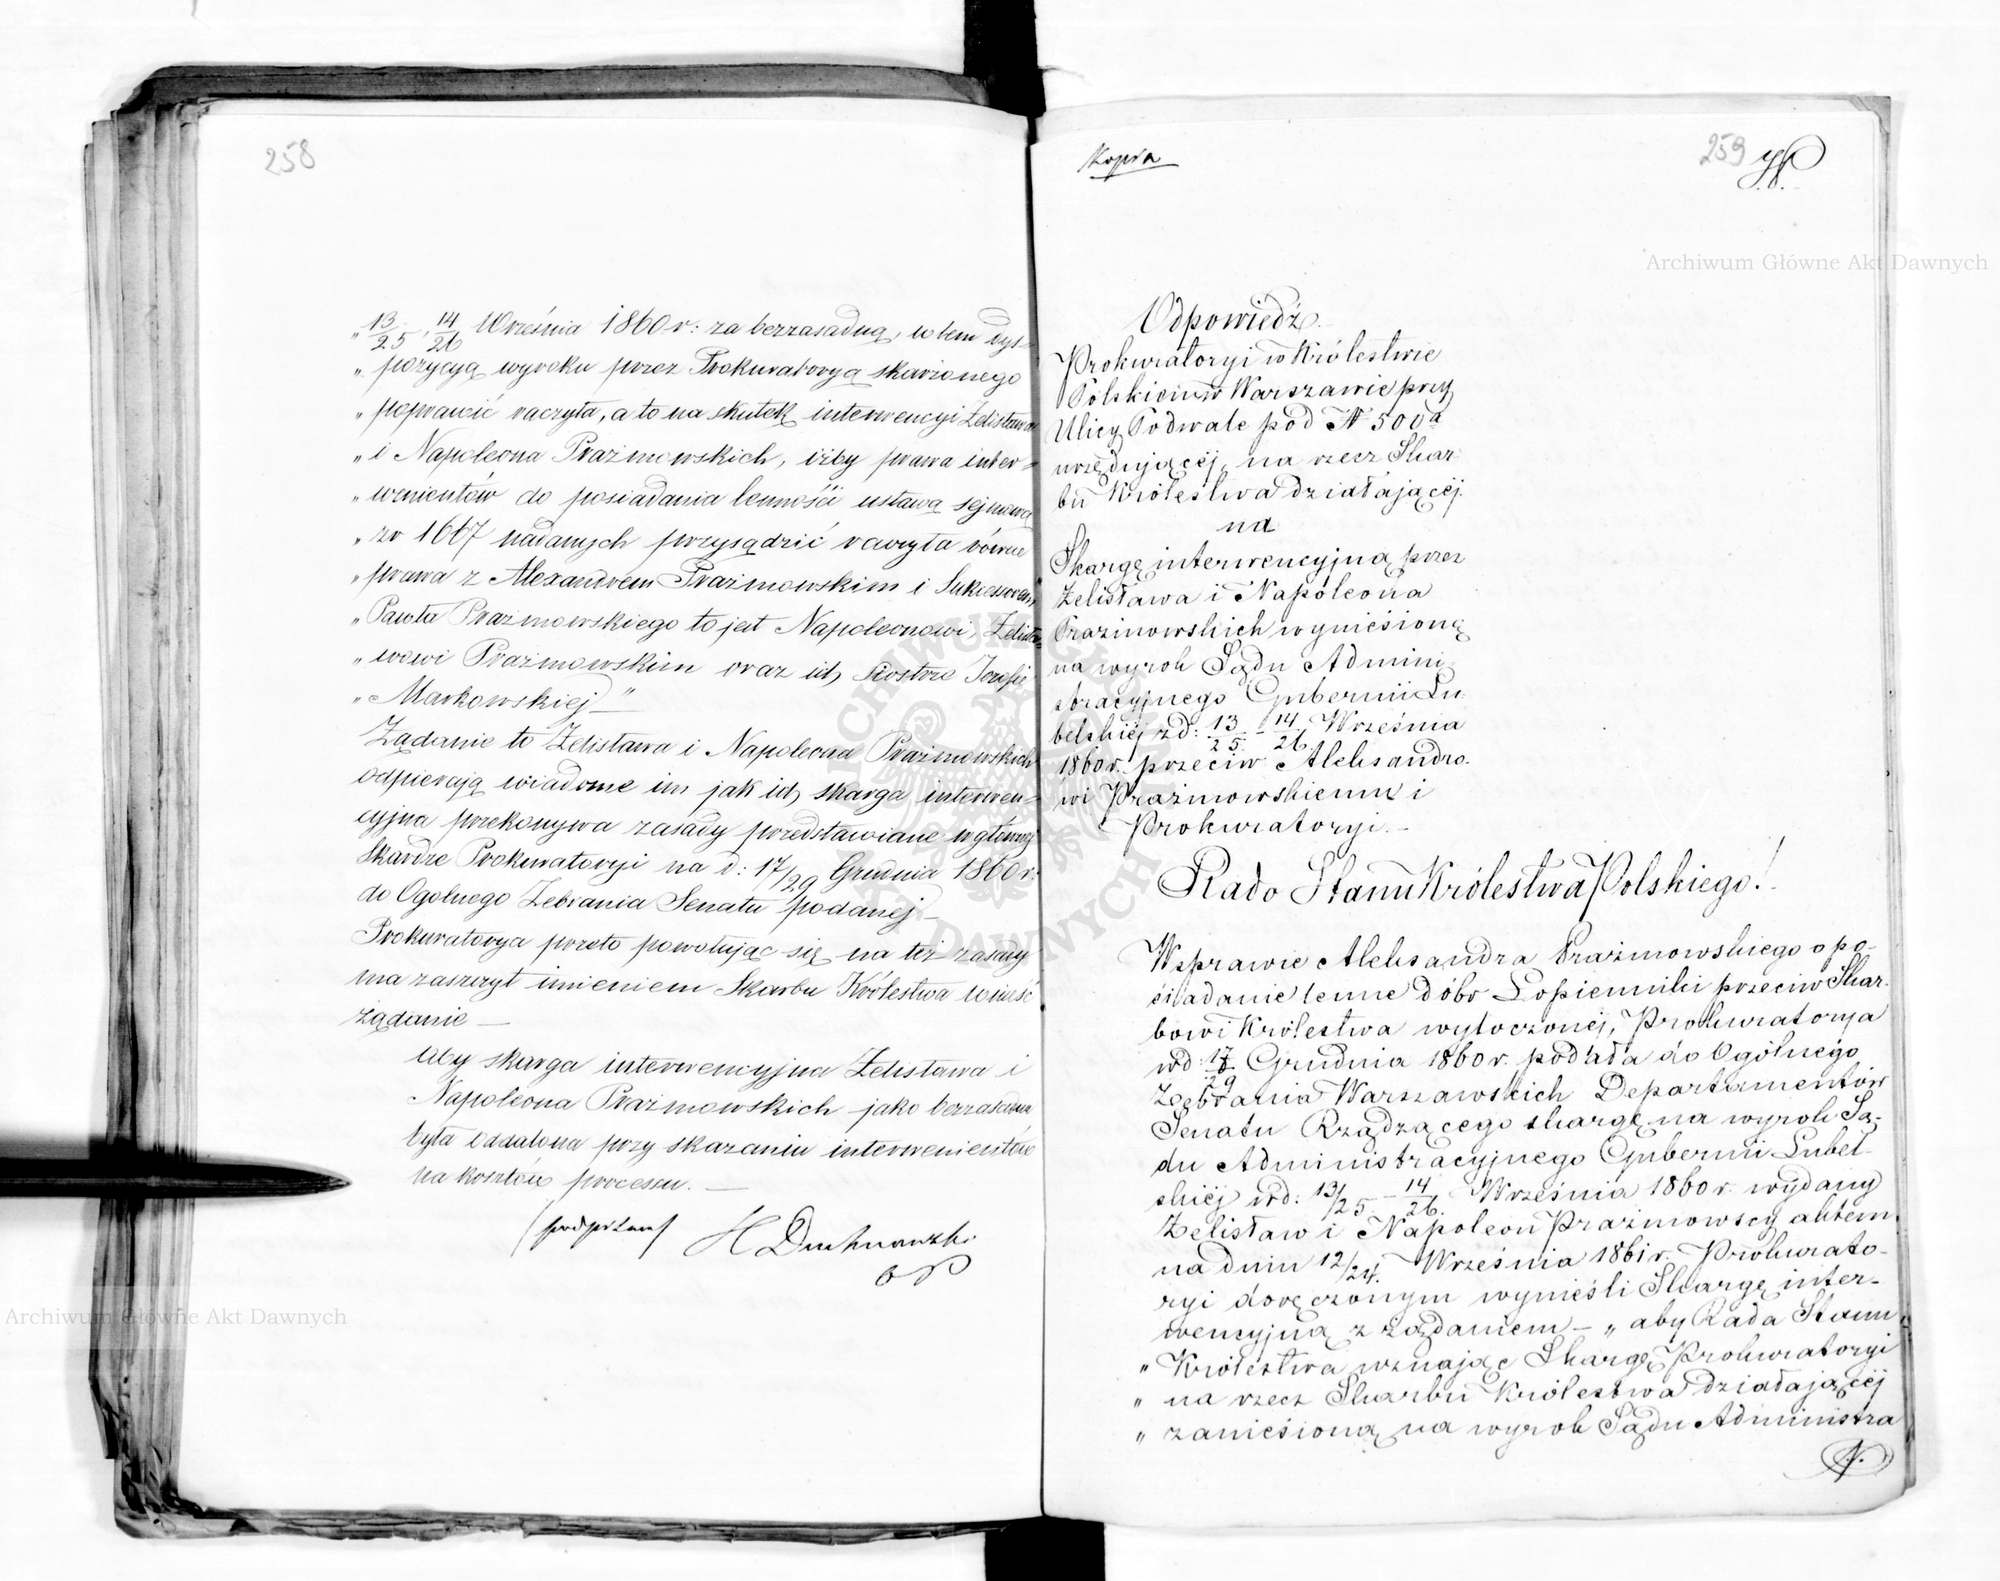 258
„ 13/25 · 14/26 Września 1860 r: za bezzasadną, w tem dys-
„ pozycyą wyroku przez Prokuratoryą skarżonego
„ poprawić raczyła, a to na skutek interwencyi Żelisława
„ i Napoleona Prażmowskich, iżby prawa inter-
„ wenientów do posiadania lenności ustawą sejmową
„ zr 1667 nadanych przysądzić raczyła równe
„ prawa z Alexandrem Prażmowskim i Sukcessorom
„ Pawła Prażmowskiego to jest Napoleonowi, Żelisła-
„ wowi Prażmowskim oraz ich Siostrze Józefie
„ Markowskiej —"
Żądanie to Żelisława i Napoleona Prażmowskich
odpierają wiadome im jak ich skarga interwen-
cyjna przekonywa zasady przedstawione w głównej
Skardze Prokuratoryi na d: 17/29 Grudnia 1860 r:
do Ogolnego Zebrania Senatu podanej —
Prokuratorya przeto powołując się na też zasady
ma zaszczyt imieniem Skarbu Królestwa wnieść
żądanie —
Aby skarga interwencyjna Żelisława i
Napoleona Prażmowskich jako bezzasadna
była oddalona przy skazaniu interwenientów
na kosztów processu. —
(podpisany)
O P
Kopia
259
Odpowiedź.
Prokuratoryi w Królestwie
Polskiem w Warszawie przy
Ulicy Podwale pod № 500a
urzędującéj, na rzecz Skar-
bu Królestwa działającéj.
na
Skargę interwencyjną przez
Żelisława i Napoleona
Prażmowskich wyniesioną
na wyrok Sądu Admini-
stracyjnego Gubernii Lu-
belskiéj z d: 13/25 - 14/26 Września
1860 r. przeciw Aleksandro-
wi Prażmowskiemu i
Prokuratoryi. —
Rado Stanu Królestwa Polskiego!
W sprawie Aleksandra Prażmowskiego o po-
siadanie lenne dóbr Łopienniki przeciw Skar-
bowi Królestwa wytoczonéj, Prokuratorya
w d: 17/29 Grudnia 1860 r. podała do Ogólnego
Zebrania Warszawskich Departamentów
Senatu Rządzącego skargę na wyrok Są-
du Administracyjnego Gubernii Lubel-
skiéj w d: 13/25 - 14/26. Września 1860 r. wydany
Żelisław i Napoleon Prażmowscy aktem
na dniu 12/24. Września 1861 r. Prokurato-
ryi doręczonym wynieśli Skargę inter-
wencyjną z żądaniem — „ aby Rada Stanu
„ Królestwa uznając Skargę Prokuratoryi
„ na rzecz Skarbu Królestwa działającéj
„ zaniesioną na wyrok Sądu Administra
Archiwum Główne Akt Dawnych
Archiwum Główne Akt Dawnych